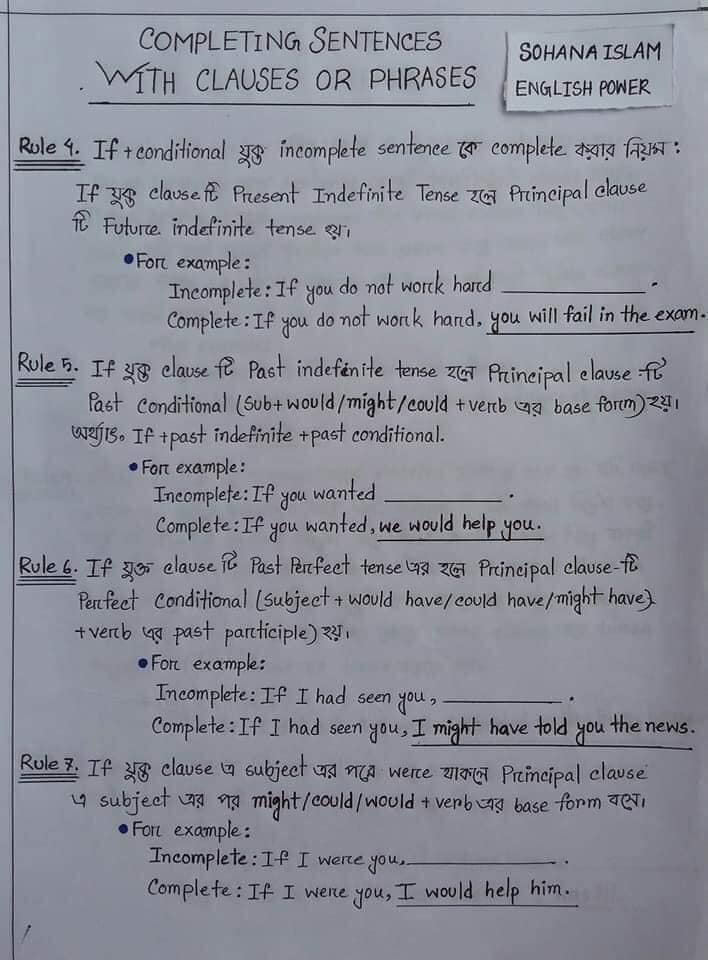 COMPLETING SENTENCES
WITH CLAUSES OR PHRASES
SOHANA ISLAM
ENGLISH POWER
Rule 4. If + conditional যুক্ত incomplete sentence কে complete করার নিয়ম :
If যুক্ত clause টি Present Indefinite Tense হলে Principal clause
টি Future indefinite tense হয়।
• For example:
Incomplete: If you do not work hard ____________.
Complete: If you do not work hard, you will fail in the exam.
Rule 5. If যুক্ত clause টি Past indefinite tense হলে Principal clause -টি
Past Conditional (Sub+would/might/could +verb এর base form) হয়।
অর্থ্যাৎ If +past indefinite +past conditional.
• For example:
Incomplete: If you wanted __________.
Complete: If you wanted, we would help you.
Rule 6. If যুক্ত clause টি Past Perfect tense এর হলে Principal clause-টি
Perfect Conditional (subject + would have/could have/might have)
+verb এর past participle) হয়।
• For example:
Incomplete: If I had seen you, __________.
Complete: If I had seen you, I might have told you the news.
Rule 7. If যুক্ত clause এ subject এর পরে were থাকলে Principal clause
এ subject এর পর might/could/would + verb এর base form বসে।
• For example:
Incomplete: If I were you, ____________.
Complete: If I were you, I would help him.